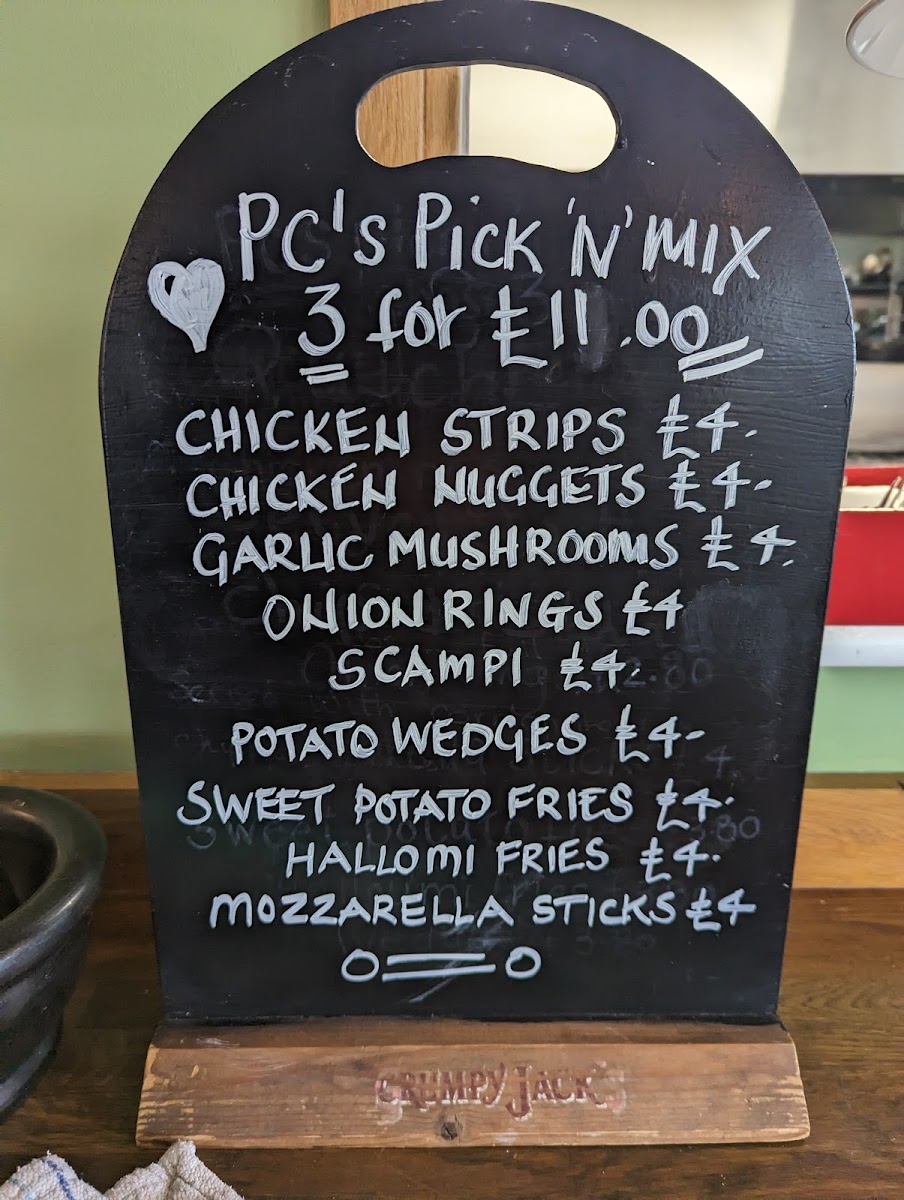 PC's Pick 'N' MIX
3 for £11.00
CHICKEN STRIPS £4.
CHICKEN NUGGETS £4.
GARLIC MUSHROOMS £4.
ONION RINGS £4
SCAMPI £4.
POTATO WEDGES £4-
SWEET POTATO FRIES £4.
HALLOMI FRIES £4.
MOZZARELLA STICKS £4
GRUMPY JACK'S